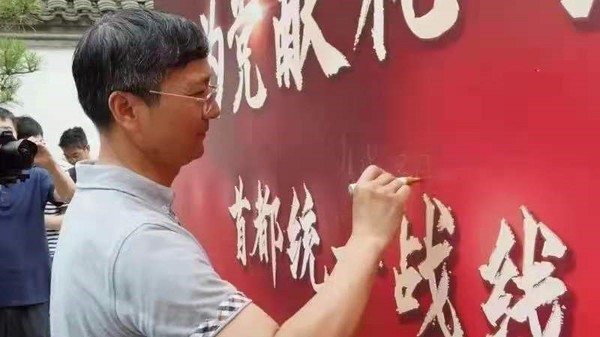 为党献礼
首都统一战线